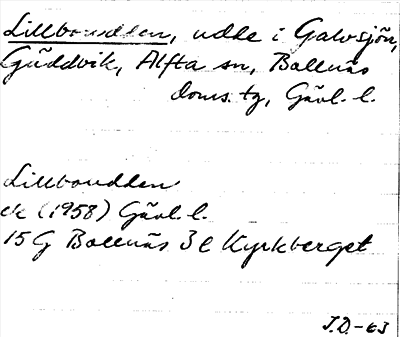 Lillboudden, udde i Galvsjön,
Gäddvik, Alfta sn, Bollnäs
doms. tg, Gävl. l.
Lillboudden
ek (1958) Gävl. l.
15 G Bollnäs 3 e Kyrkberget
J.D.-63